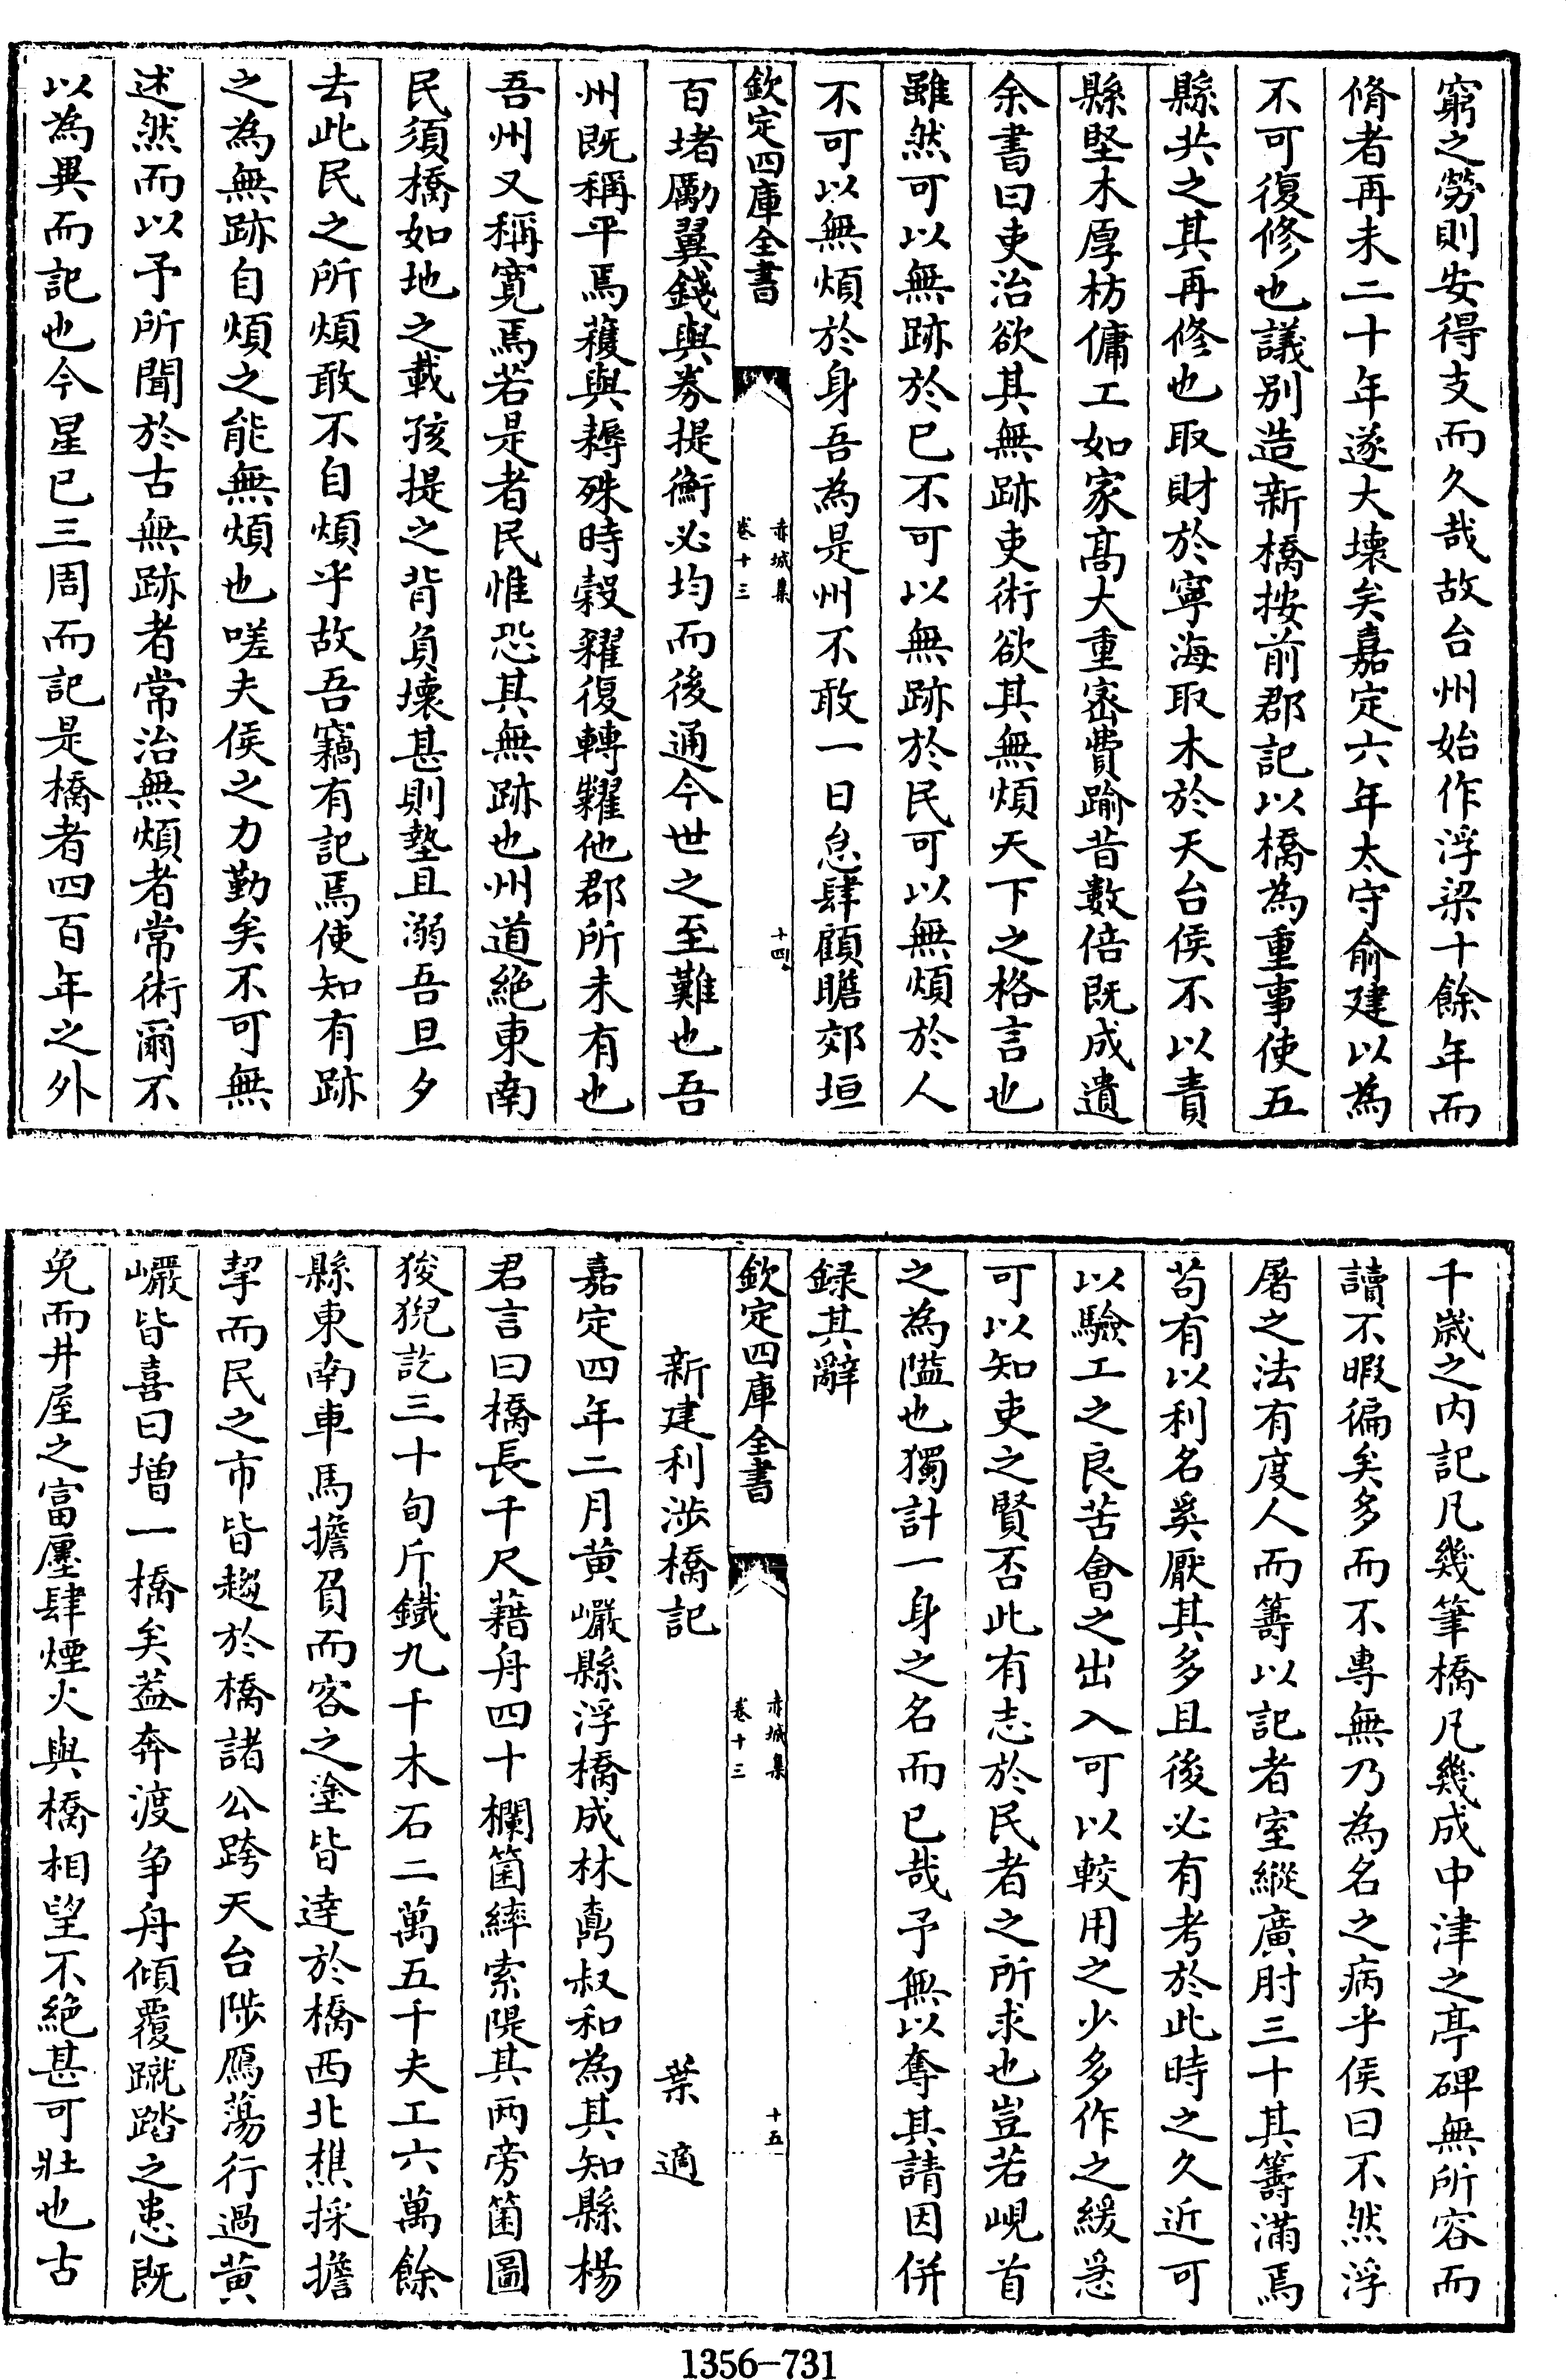 窮之勞則安得支而久哉故台州始作浮梁十餘年而
脩者再未二十年遂大壞矣嘉定六年太守俞建以為
不可復修也議别造新橋按前郡記以橋為重事使五
縣共之其再修也取財於寧海取木於天台侯不以責
縣堅木厚枋傭工如家髙大重宻費踰昔數倍既成遺
余書曰吏治欲其無跡吏術欲其無煩天下之格言也
雖然可以無跡於已不可以無跡於民可以無煩於人
不可以無煩於身吾為是州不敢一日怠肆顧瞻郊垣
欽定四庫全書
赤城集
卷十三
十四
百堵勵翼錢與劵提衡必均而後通今世之至難也吾
州既稱平焉穫與耨殊時榖糴復轉糶他郡所未有也
吾州又稱寛焉若是者民惟恐其無跡也州道絶東南
民須橋如地之載孩提之背負壞甚則墊且溺吾旦夕
去此民之所煩敢不自煩乎故吾竊有記焉使知有跡
之為無跡自煩之能無煩也嗟夫侯之力勤矣不可無
述然而以予所聞於古無跡者常治無煩者常術爾不
以為異而記也今星已三周而記是橋者四百年之外
千嵗之内記凡幾筆橋凡幾成中津之亭碑無所容而
讀不暇徧矣多而不專無乃為名之病乎侯曰不然浮
屠之法有度人而籌以記者室縱廣肘三十其籌滿焉
苟有以利名奚厭其多且後必有考於此時之久近可
以驗工之良苦會之出入可以較用之少多作之緩急
可以知吏之賢否此有志於民者之所求也豈若峴首
之為隘也獨計一身之名而已哉予無以奪其請因併
録其辭
欽定四庫全書
赤城集
卷十三
十五
新建利涉橋記 葉適
嘉定四年二月黄巖縣浮橋成林鼒叔和為其知縣楊
君言曰橋長千尺藉舟四十欄箘繂索隄其兩旁箘圖
狻猊訖三十旬斤鐡九千木石二萬五千夫工六萬餘
縣東南車馬擔負而客之塗皆達於橋西北樵採擔
挈而民之市皆趨於橋諸公跨天台陟鴈蕩行過黄
巖皆喜曰增一橋矣葢奔渡争舟傾覆蹴踏之患既
免而井屋之富廛肆煙火與橋相望不絶甚可壯也古
1356-731